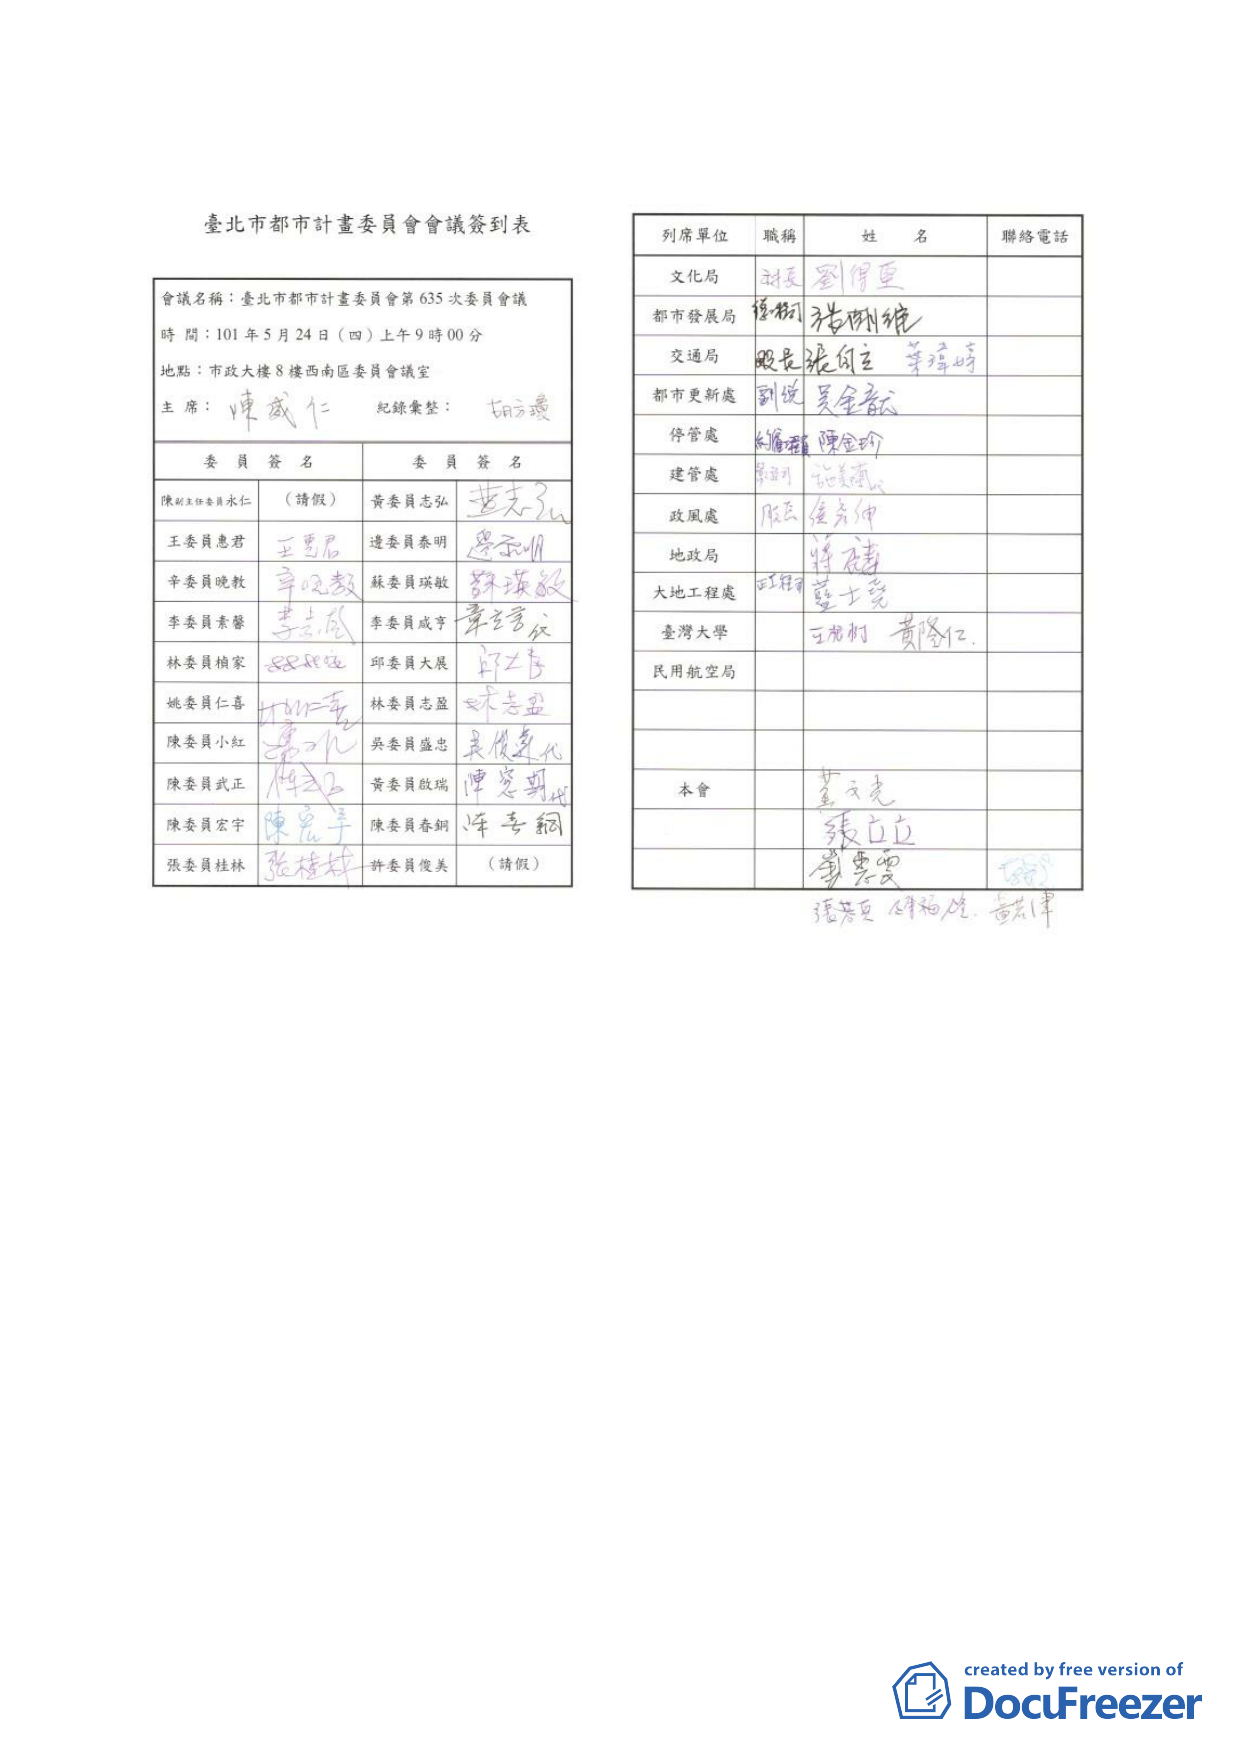 臺北市都市計畫委員會會議簽到表
會議名稱：臺北市都市計畫委員會第 635 次委員會議
時 間：101 年 5 月 24 日（四）上午 9 時 00 分
地點：市政大樓 8 樓西南區委員會議室
主 席： 陳威仁 紀錄彙整： 胡方瓊
委 員 簽 名 委 員 簽 名
陳副主任委員永仁 （請假） 黃委員志弘 黃志弘
王委員惠君 王惠君 邊委員泰明 邊泰明
辛委員晚教 辛晚教 蘇委員瑛敏 蘇瑛敏
李委員素馨 李素馨 李委員咸亨 章立言代
林委員楨家 邱委員大展 邱大展
姚委員仁喜 姚仁喜 林委員志盈 林志盈
陳委員小紅 吳委員盛忠 代
陳委員武正 陳武正 黃委員啟瑞 代
陳委員宏宇 陳宏宇 陳委員春銅 陳春銅
張委員桂林 張桂林 許委員俊美 （請假）
列席單位 職稱 姓 名 聯絡電話
文化局 科長 劉得堅
都市發展局 張剛維
交通局 股長 張自立 葉瑋婷
都市更新處 副總
停管處 陳金玲
建管處
政風處 股長
地政局
大地工程處 正工程司 藍士堯
臺灣大學 黃隆仁.
民用航空局
本會
張立立
created by free version of
DocuFreezer